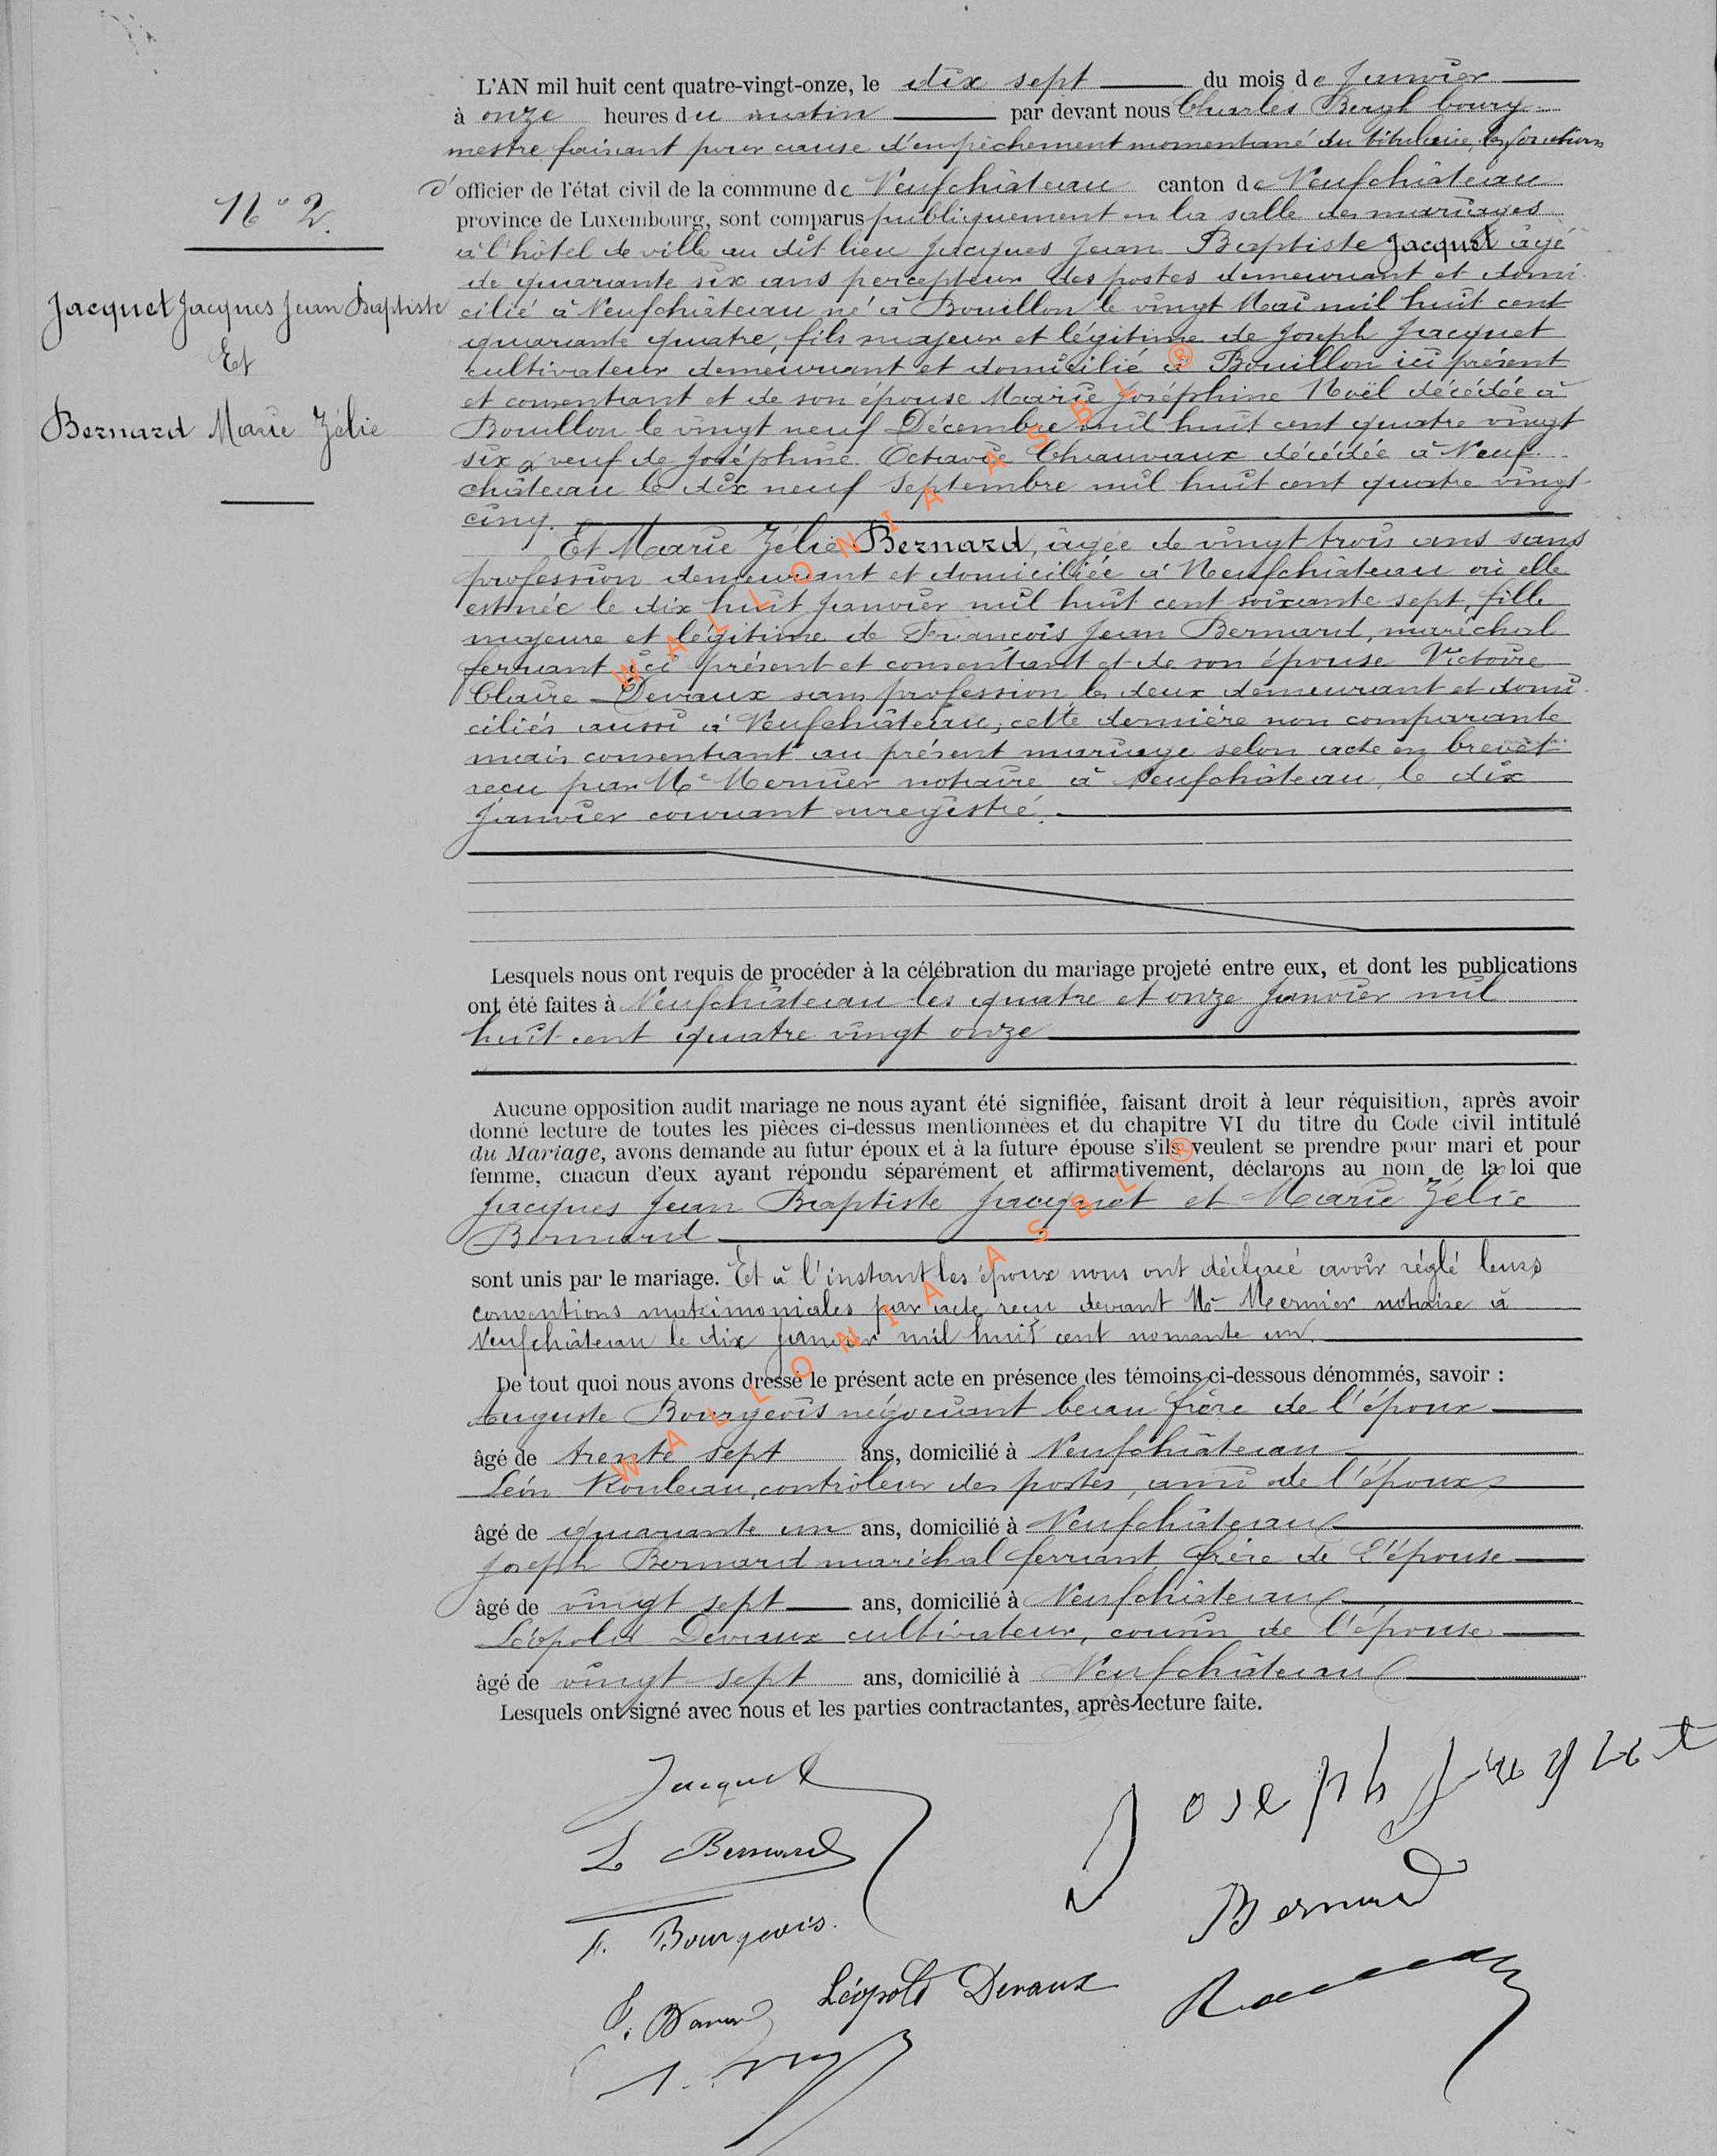 L'AN mil huit cent quatre-vingt-onze, le dix sept du mois de Janvier
à onze heures du matin par devant nous Charles Bergh bourg-
mestre faisant pour cause d'empêchement momentané du titulaire, les fonctions
d'officier de l'état civil de la commune de Neufchâteau canton de Neufchâteau
province de Luxembourg, sont comparus publiquement en la salle des mariages
à l'hôtel de ville au dit lieu Jacques Jean Baptiste Jacquet âgé
de quarante six ans percepteur des postes demeurant et domi-
cilié à Neufchâteau né à Bouillon le vingt Mai mil huit cent
quarante quatre, fils majeur et légitime de Joseph Jacquet
cultivateur demeurant et domicilié à Bouillon ici présent
et consentant et de son épouse Marie Joséphine Noël décédée à
Bouillon le vingt neuf Décembre mil huit cent quatre vingt
six, veuf de Joséphine Octavie Chauvaux décédée à Neuf-
château le dix neuf Septembre mil huit cent quatre vingt
cinq.
N° 2.
Jacquet Jacques Jean Baptiste
Et
Bernard Marie Zélie
Et Marie Zélie Bernard, âgée de vingt trois ans sans
profession demeurant et domiciliée à Neufchâteau où elle
est née le dix huit Janvier mil huit cent soixante sept, fille
majeure et légitime de François Jean Bernard, maréchal
ferrant ici présent et consentant et de son épouse Victoire
Claire Devaux sans profession les deux demeurant et domi-
ciliés aussi à Neufchâteau, cette dernière non comparante
mais consentant au présent mariage selon acte en brevet
reçu par Me Mernier notaire à Neufchâteau, le dix
Janvier courant enregistré.
Lesquels nous ont requis de procéder à la célébration du mariage projeté entre eux, et dont les publications
ont été faites à Neufchâteau les quatre et onze Janvier mil
huit cent quatre vingt onze
Aucune opposition audit mariage ne nous ayant été signifiée, faisant droit à leur réquisition, après avoir
donné lecture de toutes les pièces ci-dessus mentionnées et du chapitre VI du titre du Code civil intitulé
du Mariage, avons demande au futur époux et à la future épouse s'ils veulent se prendre pour mari et pour
femme, chacun d'eux ayant répondu séparément et affirmativement, déclarons au nom de la loi que
Jacques Jean Baptiste Jacquet et Marie Zélie
Bernard
sont unis par le mariage. Et à l'instant les époux nous ont déclaré avoir réglé leurs
conventions matrimoniales par acte reçu devant Me Mernier notaire à
Neufchâteau le dix janvier mil huit cent nonante un.
De tout quoi nous avons dressé le présent acte en présence des témoins ci-dessous dénommés, savoir :
Auguste Bourgeois négociant beau frère de l'époux
âgé de trente sept ans, domicilié à Neufchâteau
Léon Rouleau, contrôleur des postes, ami de l'époux
âgé de quarante un ans, domicilié à Neufchâteau
Joseph Bernard maréchal ferrant frère de l'épouse
âgé de vingt sept ans, domicilié à Neufchâteau
Léopold Devaux cultivateur, cousin de l'épouse
âgé de vingt sept ans, domicilié à Neufchâteau
Lesquels ont signé avec nous et les parties contractantes, après lecture faite.
Jacquet
Joseph Jacquet
Z Bernard
Bernard
A. Bourgeois.
Léopold Devaux
WALLONIA ASBL ®
WALLONIA ASBL ®